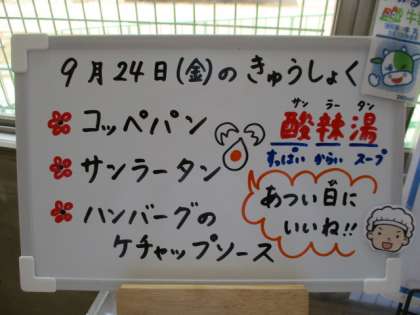 9月24日(金)のきゅうしょく
コッペパン
サンラータン
ハンバーグの
ケチャップソース
サンラータン
酸辣湯
すっぱい からい スープ
あつい日に
いいね!!